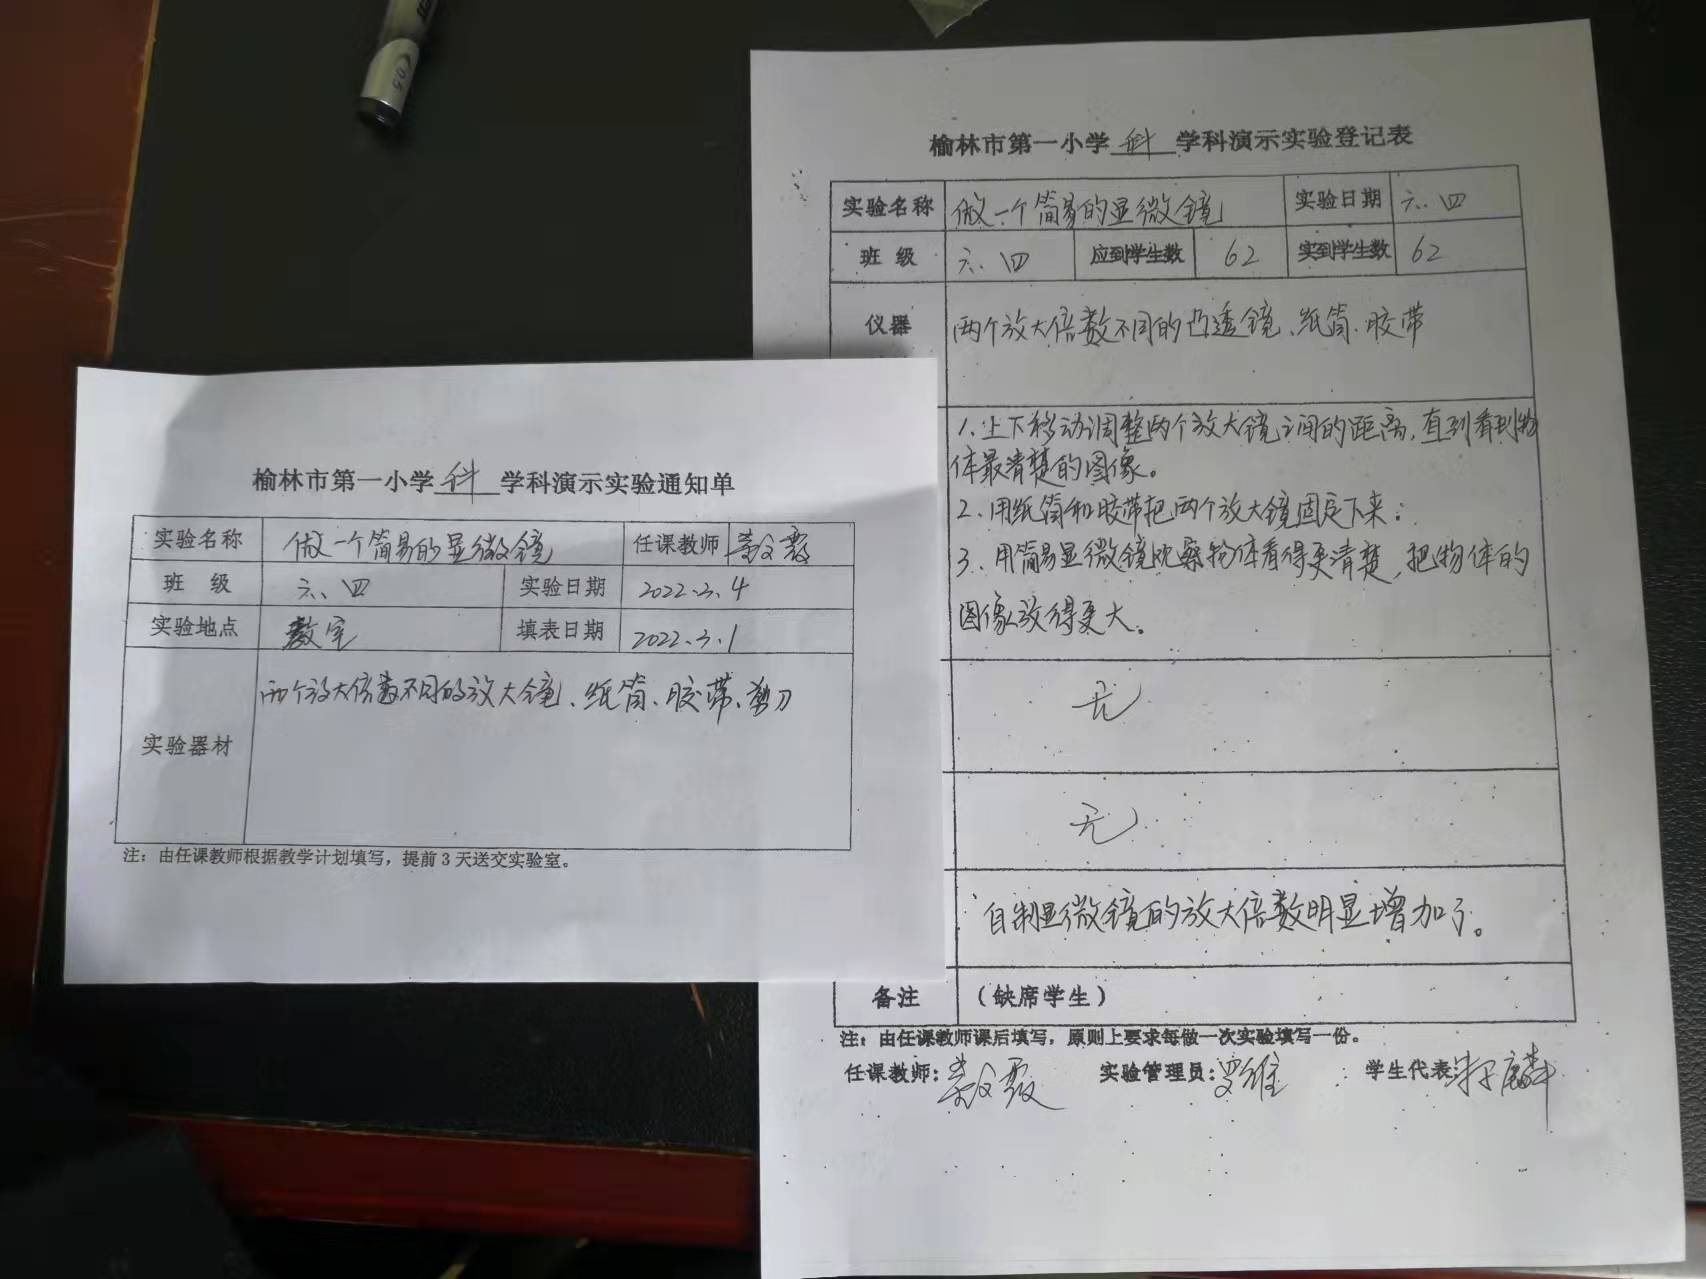 0.5
榆林市第一小学 科 学科演示实验通知单
实验名称 做一个简易的显微镜 任课教师
班 级 六、四 实验日期 2022.3.4
实验地点 教室 填表日期 2022.3.1
实验器材 两个放大倍数不同的放大镜、纸筒、胶带、剪刀
注：由任课教师根据教学计划填写，提前3天送交实验室。
榆林市第一小学 科 学科演示实验登记表
实验名称 做一个简易的显微镜 实验日期 六.四
班 级 六、四 应到学生数 62 实到学生数 62
仪器 两个放大倍数不同的凸透镜、纸筒、胶带
1、上下移动调整两个放大镜之间的距离，直到看到物
体最清楚的图像。
2、用纸筒和胶带把两个放大镜固定下来；
3、用简易显微镜观察物体看得更清楚，把物体的
图像放得更大。
无
无
自制显微镜的放大倍数明显增加了。
备注 （缺席学生）
注：由任课教师课后填写，原则上要求每做一次实验填写一份。
任课教师： 实验管理员：罗维 学生代表：